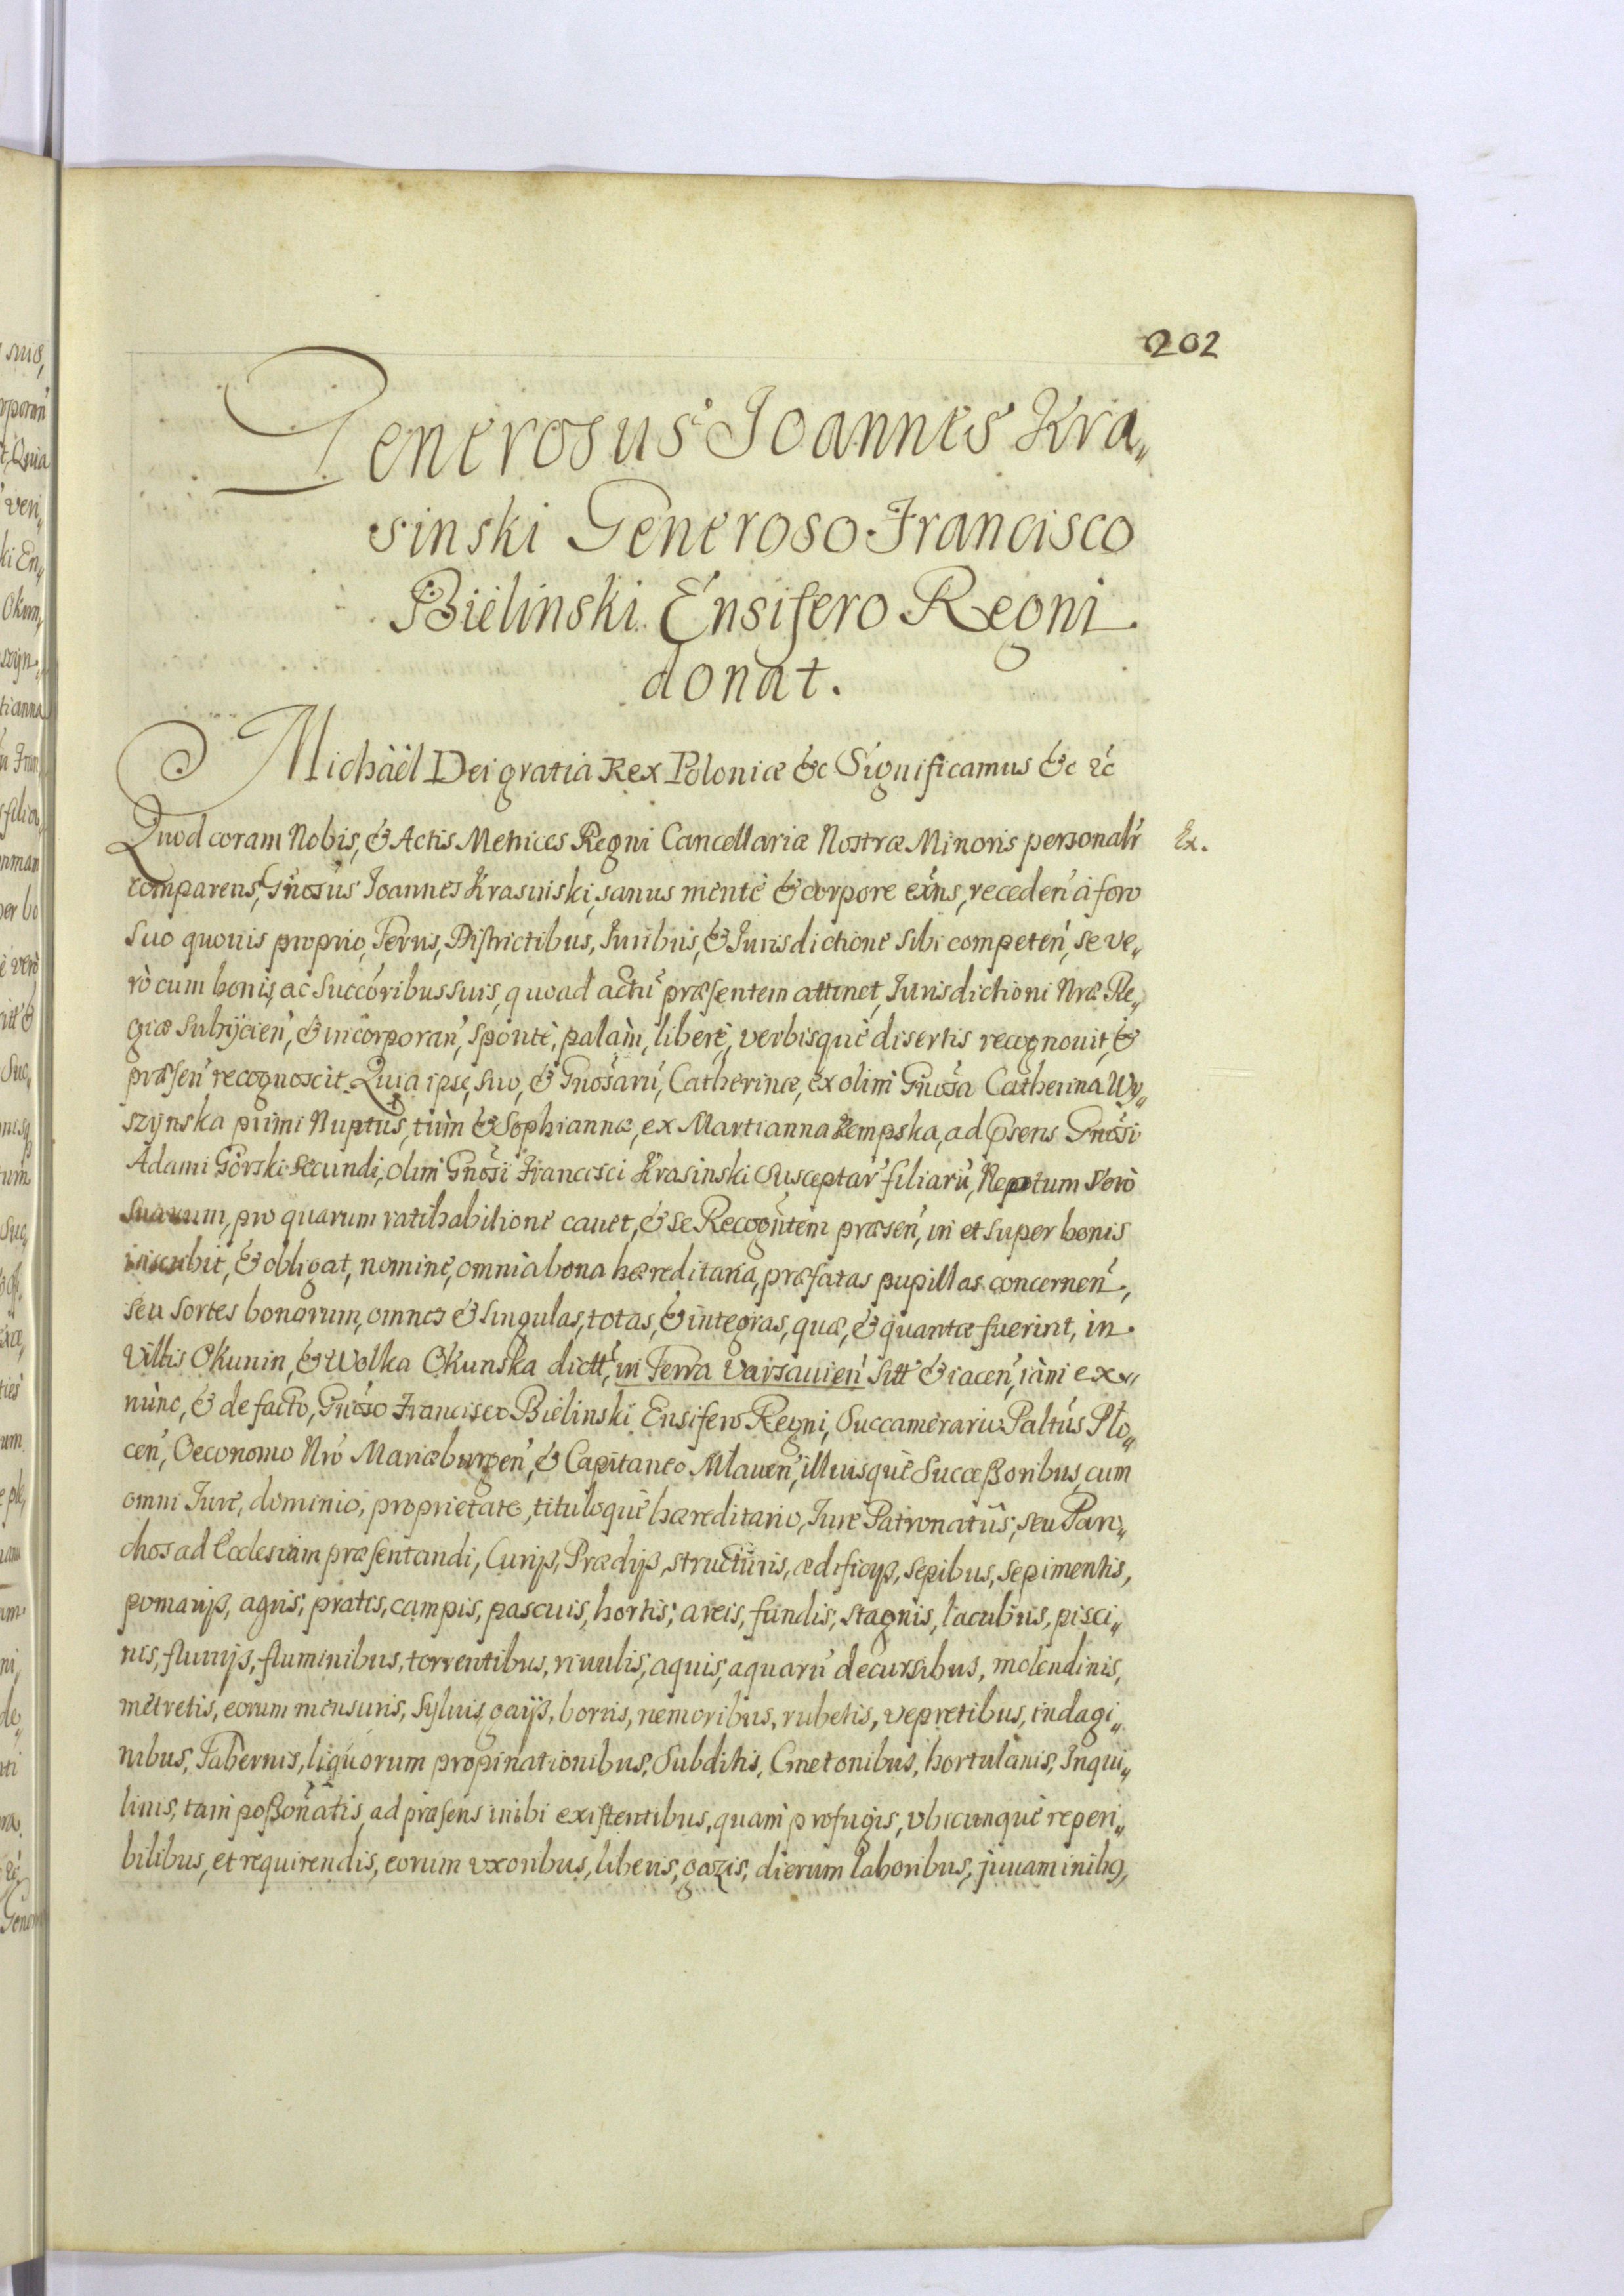 202
Generosus Joannes Kra„
sinski Generoso Francisco
Bielinski Ensifero Regni
donat.
Michaël Dei gratia Rex Poloniæ &c Significamus &c &c
Quod coram Nobis, & Actis Metrices Regni Cancellariæ Nostræ Minoris personalr̃
Ex.
comparens, Gñosus Joannes Krasinski, sanus mente & corpore exñs, receden̄ à foro
suo quovis proprio, Terris, Districtibus, Juribus, & Jurisdictione sibi competeñ, se ve„
rò cum bonis, ac Succoribus suis, quoad actũ præsentem attinet, Jurisdictioni Nræ Re„
giæ subijcieñ, & incorporañ, sponte, palàm, liberè, verbisquè disertis recognouit, &
præseñ recognoscit. Quia ipse, suo, & Gñosarũ, Catherinæ, ex olim Gñosa Catherina Wy„
szynska primi Nuptus, tùm & Sophiannæ, ex Martianna Kempska, ad præsens Gñosi
Adami Gorski secundi, olim Gñosi Francisci Krasinski susceptar̃ filiarũ, Neptum verò
suarum, pro quarum ratihabitione cauet, & se Recogñtem præseñ, in et super bonis
inscribit, & obligat, nomine, omnia bona hæreditaria, præfatas pupillas concerneñ,
seu sortes bonorum, omnes & singulas, totas, & integras, quæ, & quantæ fuerint, in
Villis Okunin, & Wolka Okunska dictt̃, in Terra Varsauieñ sitt̃ & iaceñ, iàm ex„
nùnc, & de facto, Gñoso Francisco Bielinski Ensifero Regni, Succamerario Palt̃us Plo„
ceñ, Oeconomo Nrõ Mariæburgeñ, & Capitaneo Mlaueñ, illiusquè Successoribus, cum
omni Jure, dominio, proprietate, tituloquè hæreditario, Jure Patronatûs, seu Paro„
chos ad Ecclesiam præsentandi, Curijs, Prædijs, structuris, ædificijs, sepibus, sepimentis,
pomarijs, agris, pratis, campis, pascuis, hortis, areis, fundis, stagnis, lacubus, pisci„
nis, fluuijs, fluminibus, torrentibus, riuulis, aquis, aquarũ decursibus, molendinis,
metretis, eorum mensuris, syluis, gaijs, borris, nemoribus, rubetis, vepretibus, indagi„
nibus, Tabernis, liquorum propinationibus, Subditis, Cmetonibus, hortulanis, Inqui„
linis, tam possoñatis, ad præsens inibi existentibus, quam profugis, vbicunquè reperi„
bilibus, et requirendis, eorum vxoribus, liberis, gazis, dierum laboribus, juuaminibg,